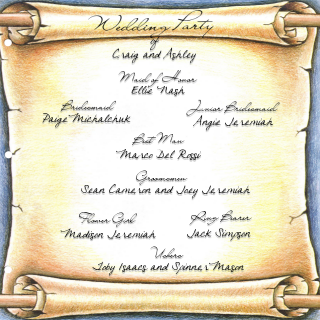 Wedding Party
of
Craig and Ashley
Maid of Honor
Ellie Nash
Bridesmaid
Paige Michalchuk
Junior Bridesmaid
Angie Jeremiah
Best Man
Marco Del Rossi
Groomsmen
Sean Cameron and Joey Jeremiah
Flower Girl
Madison Jeremiah
Ring Bearer
Jack Simpson
Ushers
Toby Isaacs and Spinner Mason